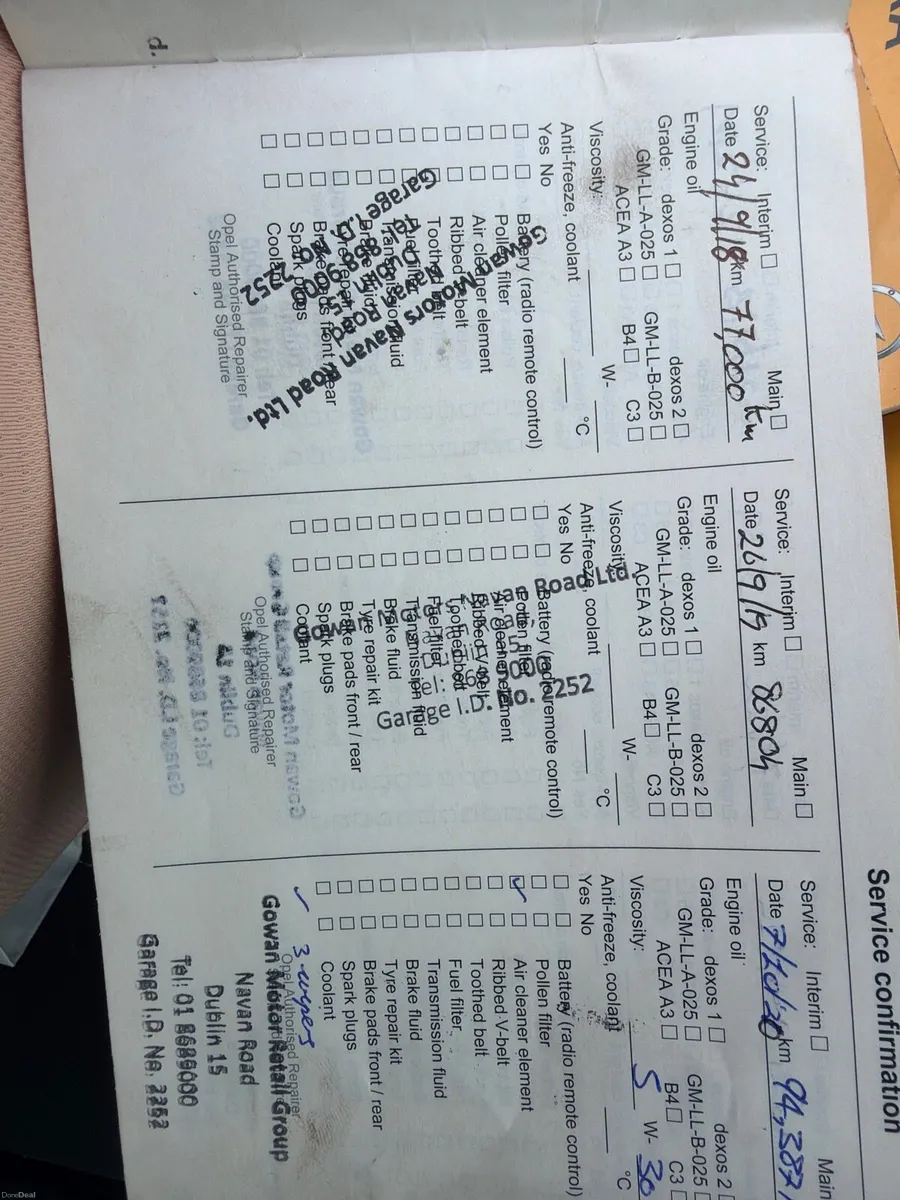 Service confirmation
Service: Interim ☐ Main ☐
Date 24/9/18 km 77,000 km
Engine oil
Grade: dexos 1 ☐ dexos 2 ☐
GM-LL-A-025 ☐ GM-LL-B-025 ☐
ACEA A3 ☐ B4 ☐ C3 ☐
Viscosity: W-
Anti-freeze, coolant °C
Yes No
☐ ☐ Battery (radio remote control)
☐ ☐ Pollen filter
☐ ☐ Air cleaner element
☐ ☐ Ribbed V-belt
☐ ☐ Toothed belt
☐ ☐ Fuel filter
☐ ☐ Transmission fluid
☐ ☐ Brake fluid
☐ ☐ Tyre repair kit
☐ ☐ Brake pads front / rear
☐ ☐ Spark plugs
☐ ☐ Coolant
Opel Authorised Repairer
Stamp and Signature
Gowan Motors Navan Road Ltd.
Service: Interim ☐ Main ☐
Date 26/9/19 km 86804
Engine oil
Grade: dexos 1 ☐ dexos 2 ☐
GM-LL-A-025 ☐ GM-LL-B-025 ☐
ACEA A3 ☐ B4 ☐ C3 ☐
Viscosity: W-
Anti-freeze, coolant °C
Yes No
☐ ☐ Battery (radio remote control)
☐ ☐ Pollen filter
☐ ☐ Air cleaner element
☐ ☐ Ribbed V-belt
☐ ☐ Toothed belt
☐ ☐ Fuel filter
☐ ☐ Transmission fluid
☐ ☐ Brake fluid
☐ ☐ Tyre repair kit
☐ ☐ Brake pads front / rear
☐ ☐ Spark plugs
☐ ☐ Coolant
Opel Authorised Repairer
Stamp and Signature
Road Ltd.
Garage I.D. No. 2252
Service: Interim ☐ Main
Date 7/10/20 km 94,387
Engine oil
Grade: dexos 1 ☐ dexos 2 ☐
GM-LL-A-025 ☐ GM-LL-B-025 ☐
ACEA A3 ☐ B4 ☐ C3 ☐
Viscosity: 5 W- 30
Anti-freeze, coolant °C
Yes No
☐ ☐ Battery (radio remote control)
☐ ☐ Pollen filter
☑ ☐ Air cleaner element
☐ ☐ Ribbed V-belt
☐ ☐ Toothed belt
☐ ☐ Fuel filter
☐ ☐ Transmission fluid
☐ ☐ Brake fluid
☐ ☐ Tyre repair kit
☐ ☐ Brake pads front / rear
☐ ☐ Spark plugs
☐ ☐ Coolant
✓ 3-wipes
Opel Authorised Repairer
Gowan Motor Retail Group
Navan Road
Dublin 15
Tel: 01 8689000
Garage I.D. No. 2252
d.
DoneDeal